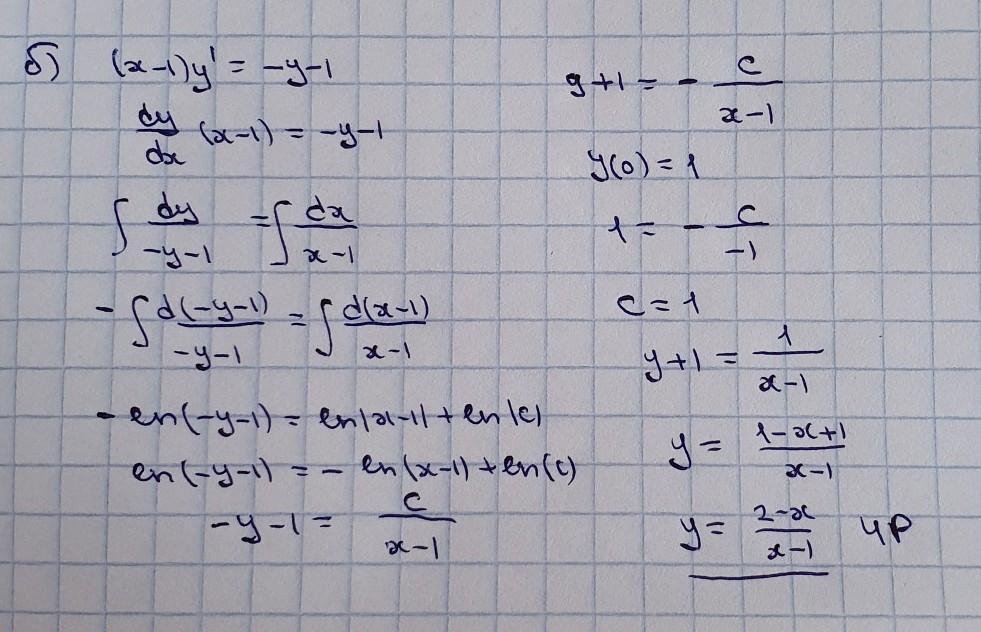 б) (x-1)y' = -y-1
dy/dx (x-1) = -y-1
∫ dy/(-y-1) = ∫ dx/(x-1)
- ∫ d(-y-1)/(-y-1) = ∫ d(x-1)/(x-1)
- ln(-y-1) = ln|x-1| + ln|c|
ln(-y-1) = - ln(x-1) + ln(c)
-y-1 = c/(x-1)
y+1 = - c/(x-1)
y(0) = 1
1 = - c/(-1)
c = 1
y+1 = 1/(x-1)
y = (1-x+1)/(x-1)
y = (2-x)/(x-1) ЧР